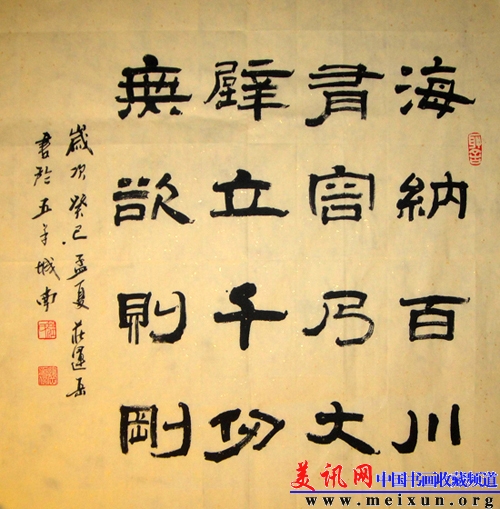 海納百川
有容乃大
壁立千仞
無欲則剛
歲次癸巳孟夏莊運岳
書於五羊城南
美讯网 中国书画收藏频道
www.meixun.org